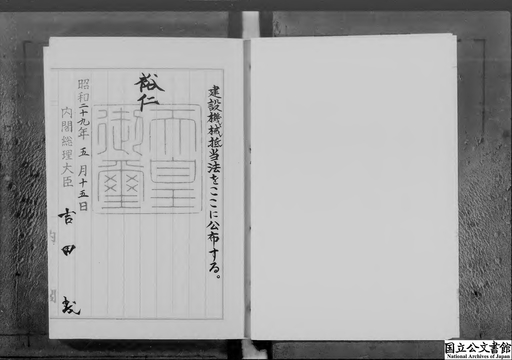 建設機械抵当法をここに公布する。
裕仁
天皇御璽
昭和二十九年五月十五日
内閣総理大臣
吉田茂
内閣
国立公文書館
National Archives of Japan